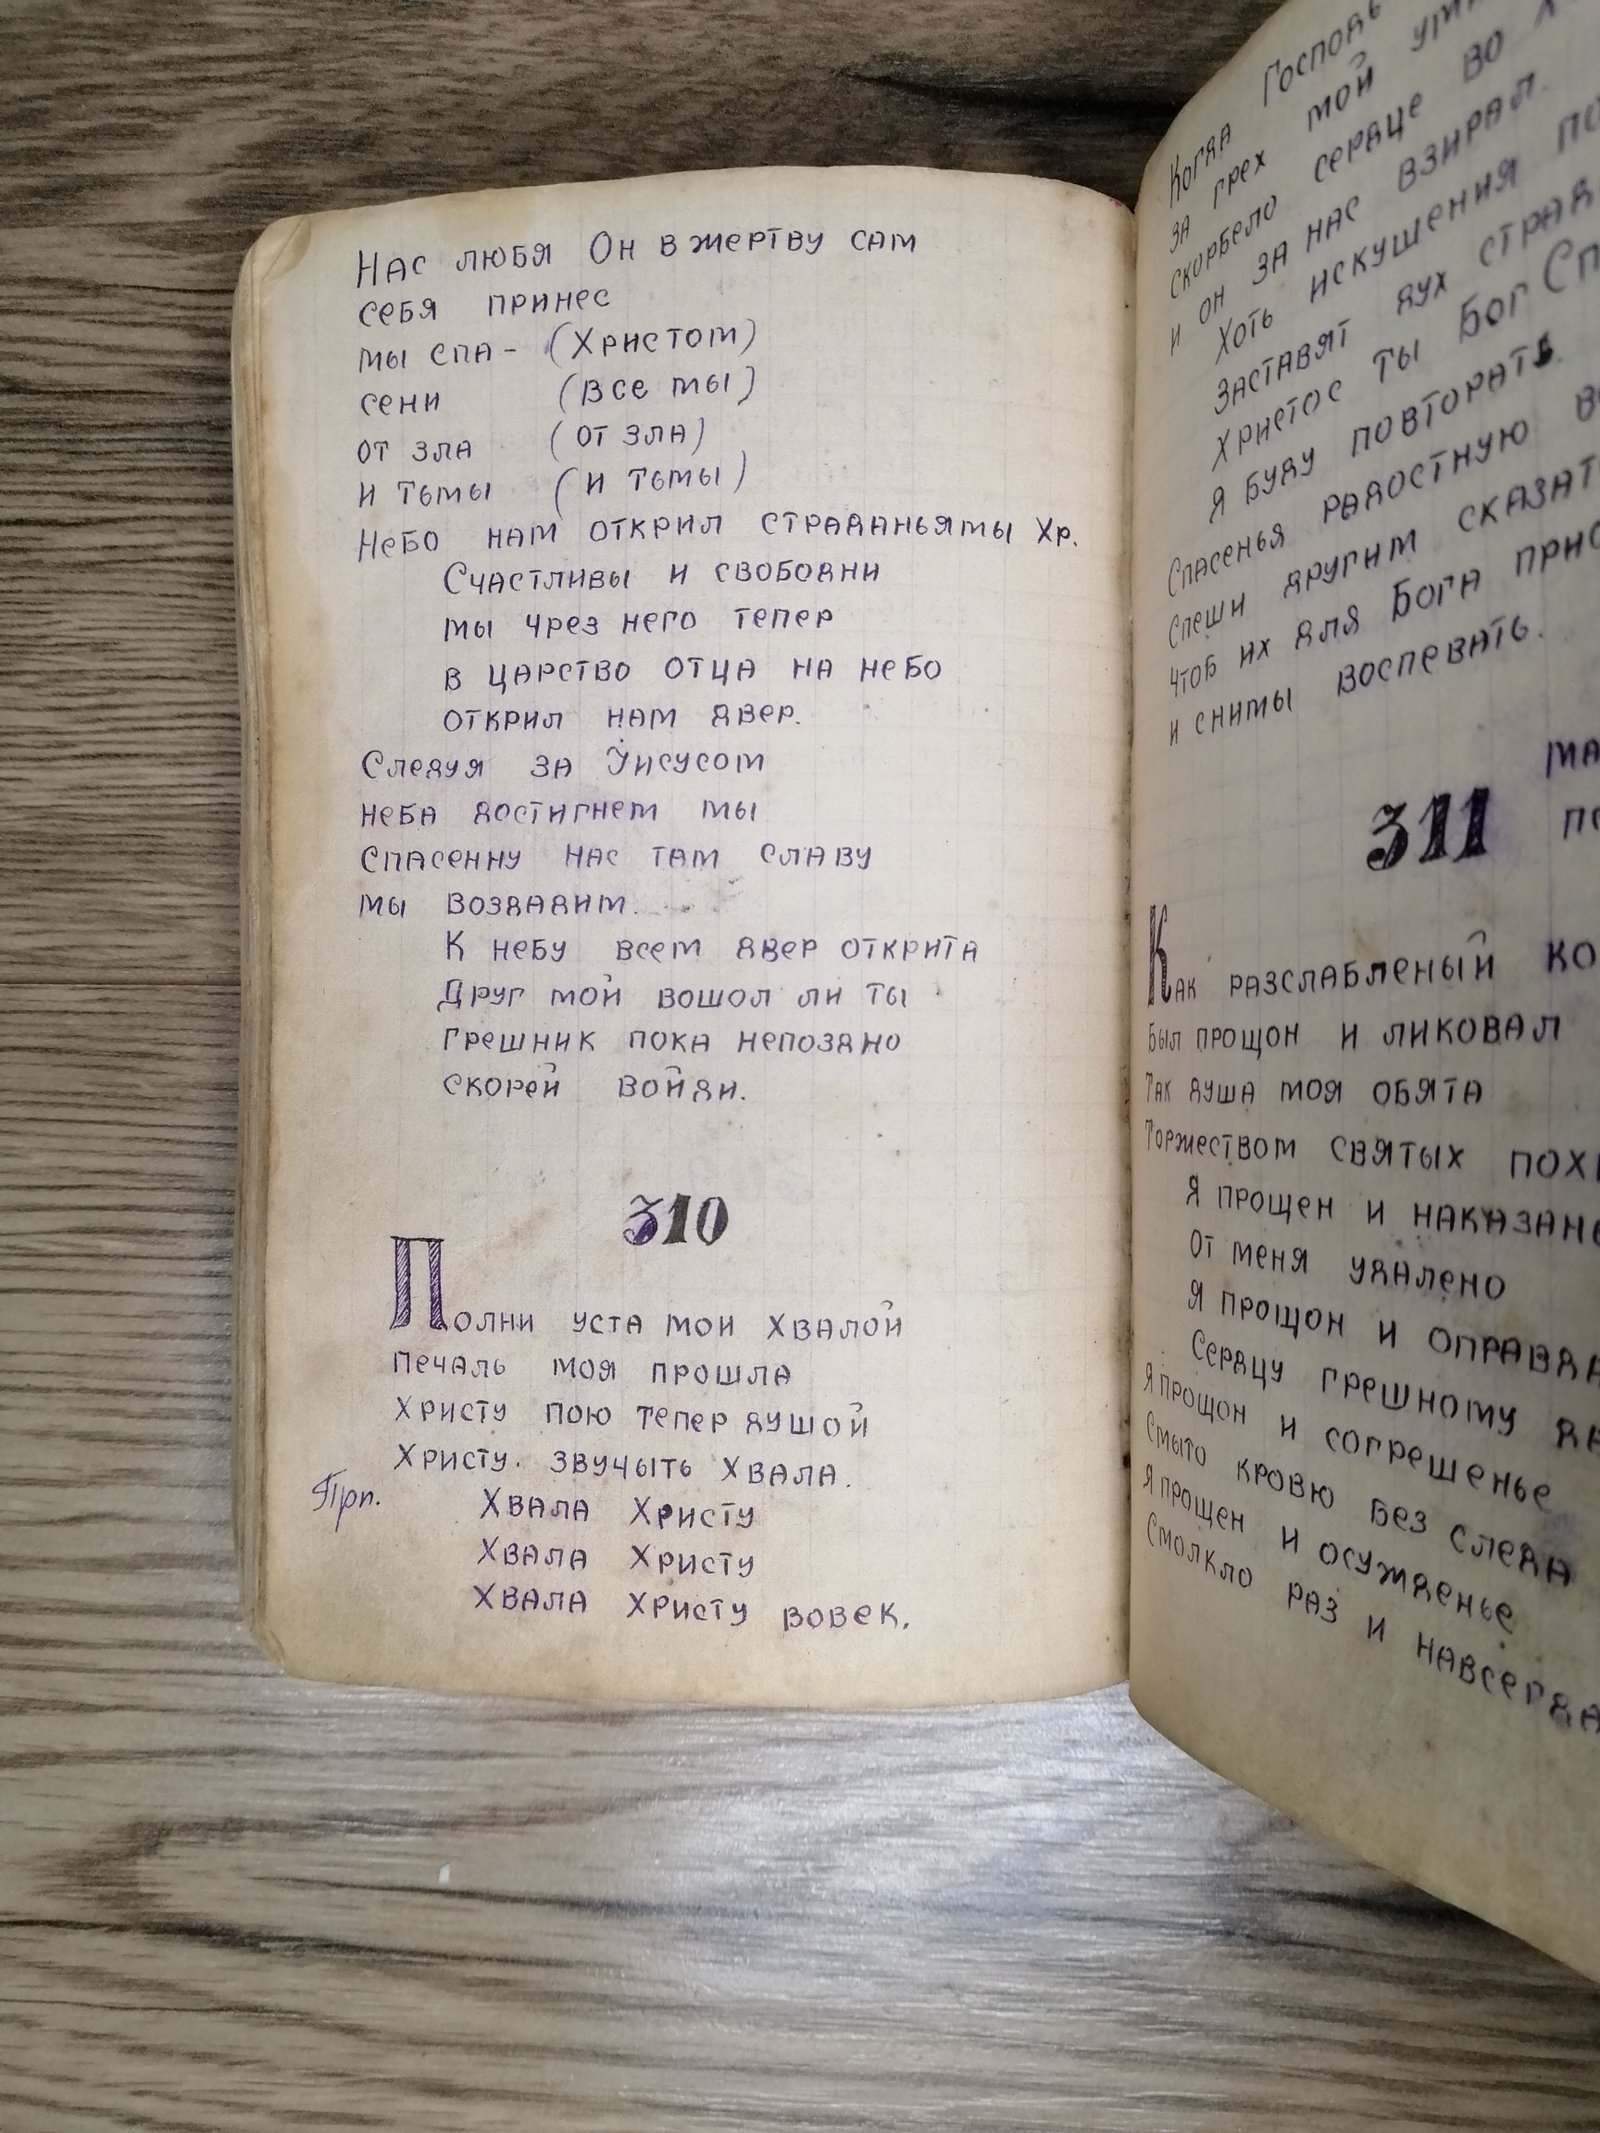 Нас любя Он в жертву сам
себя принес
мы спа- (Христом)
сени (все мы)
от зла (от зла)
и тьмы (и тьмы)
Небо нам открил страданьяты Хр.
Счастливы и свободни
мы чрез него тепер
в царство отца на небо
открил нам двер.
Следуя за Иисусом
неба достигнем мы
Спасенну нас там славу
мы воздадим.
К небу всем двер открита
Друг мой вошол ли ты
грешник пока непоздно
скорей войди.
310
Полни уста мои хвалой
печаль моя прошла
Христу пою тепер душой
Христу звучыть хвала.
Прп. Хвала Христу
Хвала Христу
Хвала Христу вовек.
Когда Господь
за грех мой
скорбело сердце во
и он за нас взирал.
Хоть искушения
заставят дух
Христос ты Бог
я буду повторать.
Спасенья радостную
спеши другим
чтоб их для Бога
и снимы воспевать.
311
Как разслабленый
был прощон и ликовал
так душа моя обята
Торжеством святых
Я прощен и
От меня удалено
Я прощон и
Сердцу грешному
Я прощон и согрешенье
Смыто кровю без следа
Я прощен и осужденье
Смолкло раз и навсегда